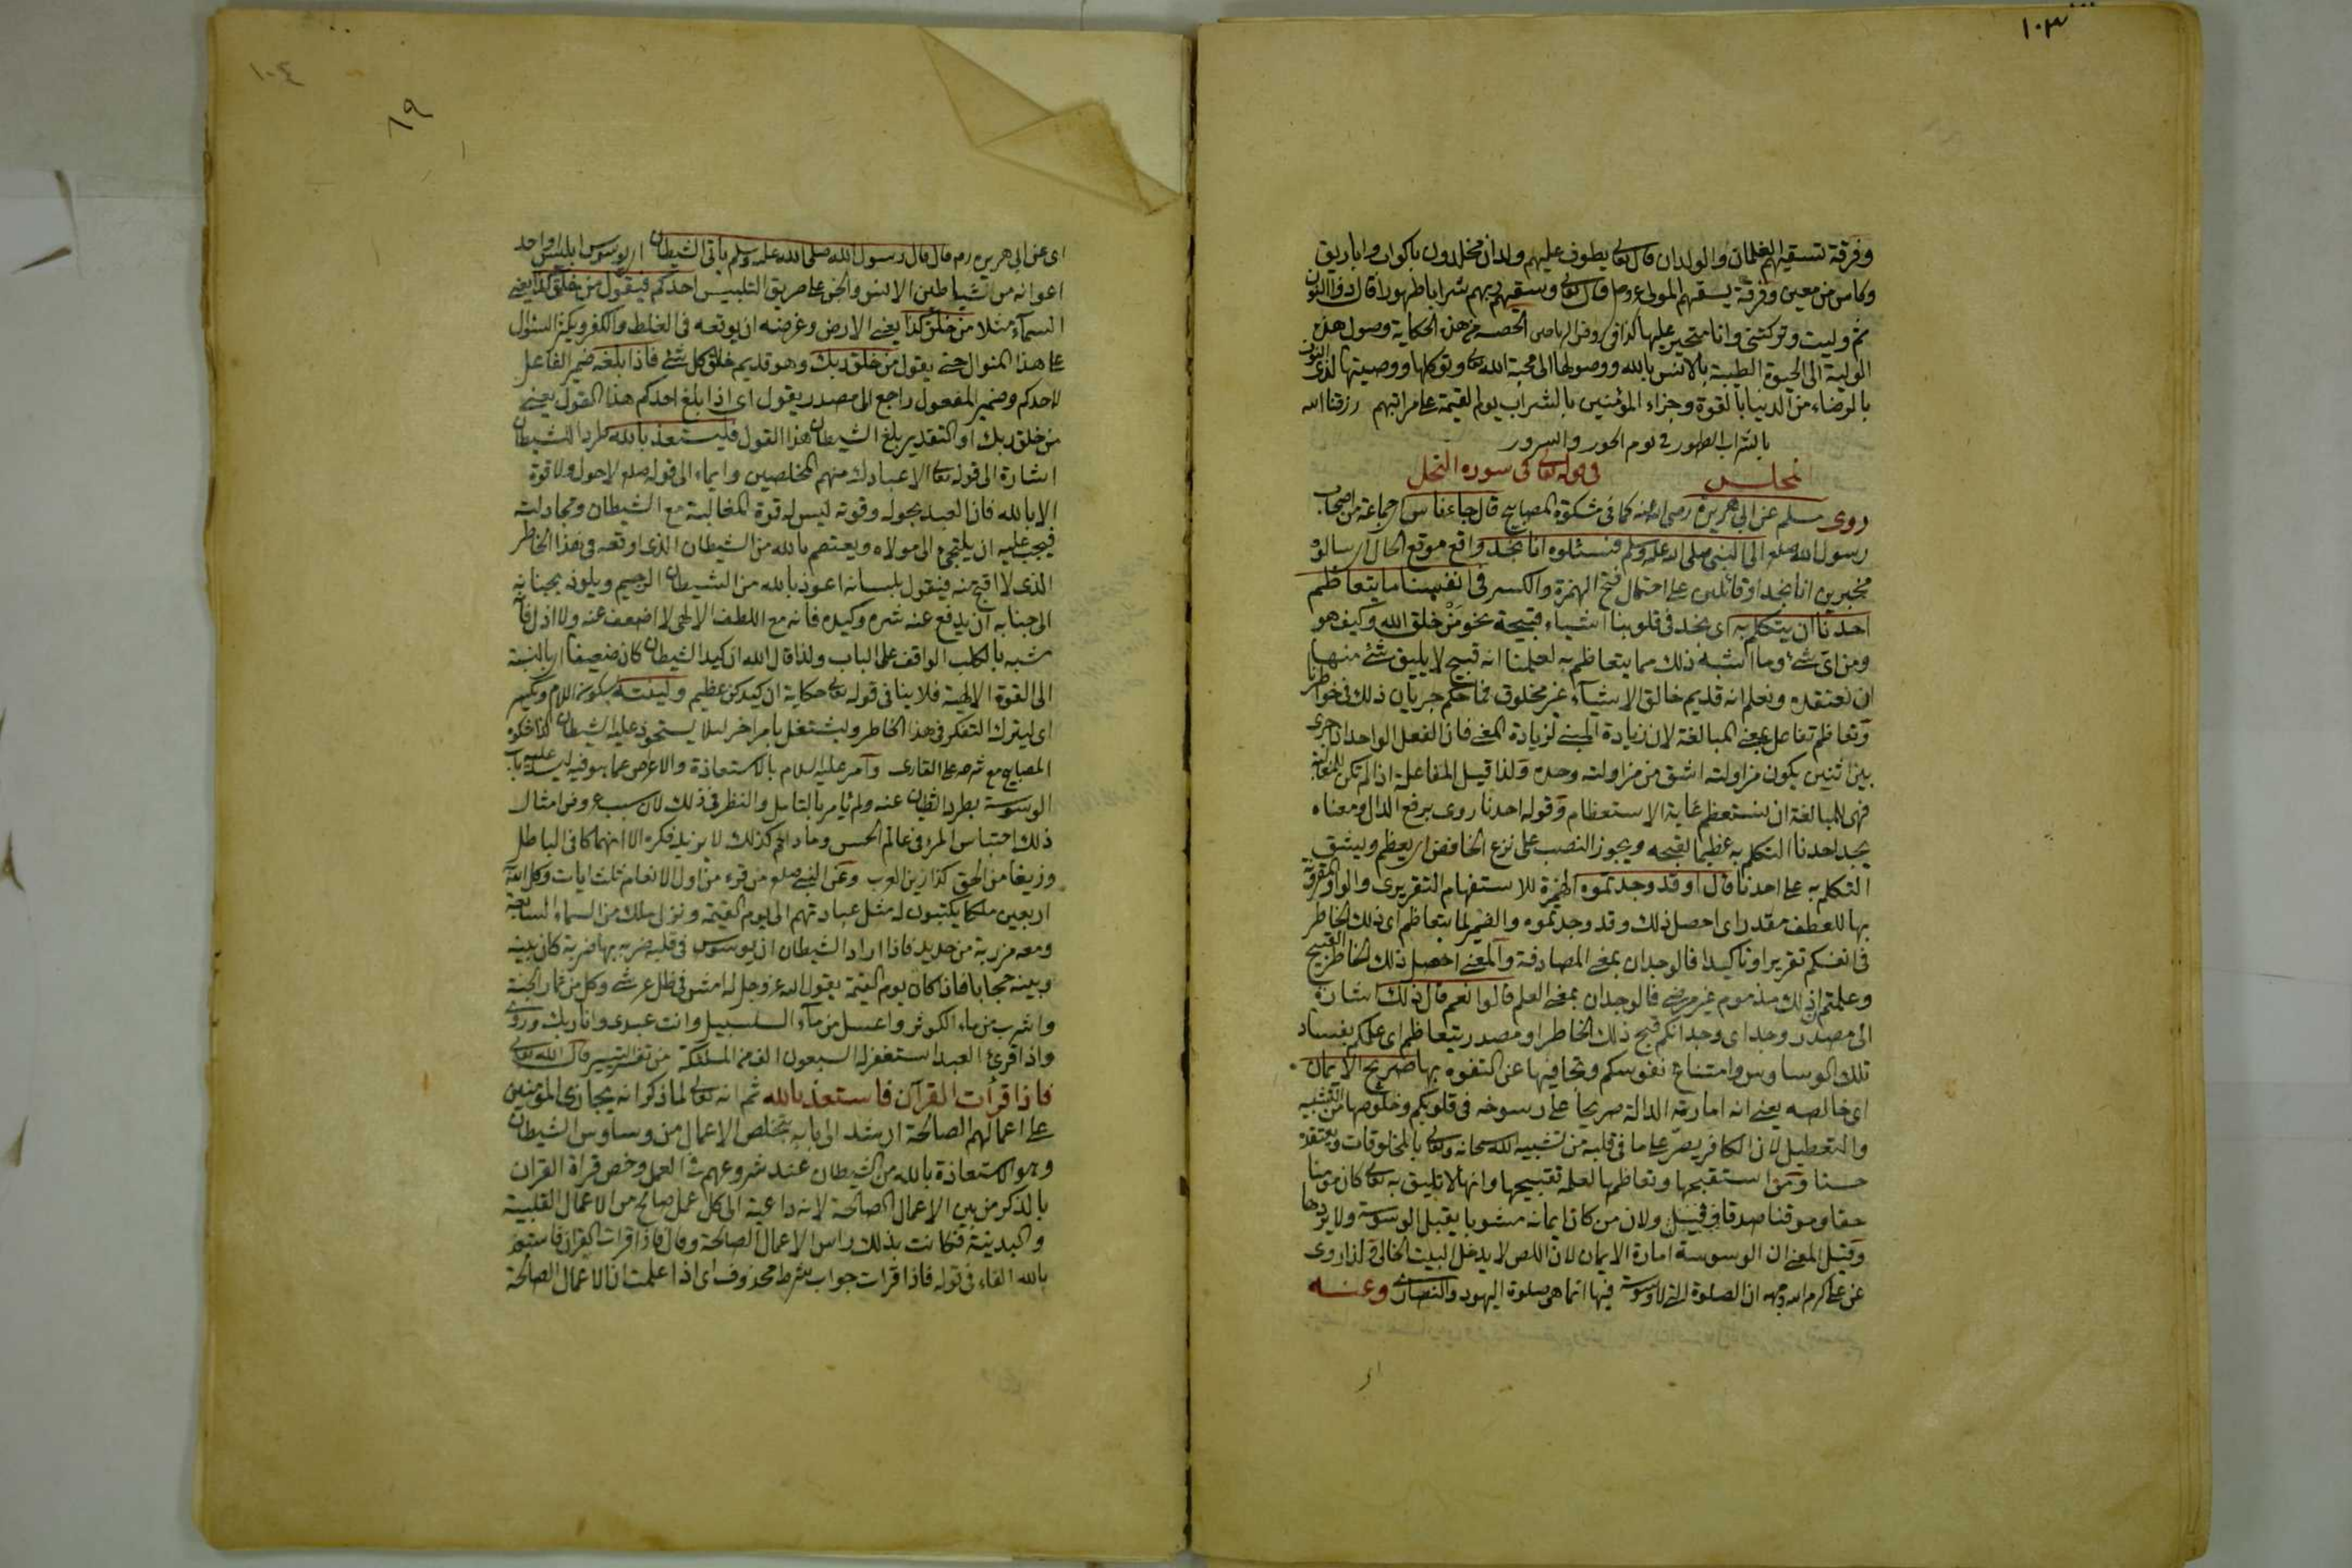 ١٠٣
وفرقة تسقيهم الغلمان والولدان قال تعالى يطوف عليهم ولدان مخلدون باكواب واباريق
وكاس من معين وفرقة يسقهم المولى عز وجل قال تعالى وسقيهم ربهم شرابا طهورا قال ذو النون
ثم وليت وتركتنى وانا متحير عليها كذا فى روض الرياحين الحصه من هذه الحكاية وصول هذه
الولية الى الحيوة الطيبة بالانس بالله ووصولها الى محبة الله تعالى وتوكلها ووصيتها لذى النون
بالرضاء من الدنيا بالقوة وجزاء المؤمنين بالشراب يوم القيمة على مراتبهم رزقنا الله
بالشراب الطهور فى يوم الحور والسرور
المجلس فى قوله تعالى فى سورة النحل
روى مسلم عن ابى هريرة رضى الله عنه كما فى مشكوة المصابيح قال جاء ناس اى جماعة من اصحاب
رسول الله صلعم الى النبى صلى الله عليه وسلم فسئلوه انا نجد واقع موقع الحال اى سالوه
مخبرين انا نجد او قائلين على احتمال فتح الهمزة والكسر فى انفسنا ما يتعاظم
احدنا ان يتكلم به اى نجد فى قلوبنا اشياء قبيحة نحو من خلق الله وكيف هو
ومن اى شئ وما اشبه ذلك مما يتعاظم به لعلمنا انه قبيح لا يليق شئ منها
ان نعتقده ونعلم انه قديم خالق الاشياء غير مخلوق فما حكم جريان ذلك فى خواطرنا
وتعاظم تفاعل بمعنى المبالغة لان زيادة المبنى لزيادة المعنى فان الفعل الواحد اذا جرى
بين اثنين يكون مزاولته اشق من مزاولته وحده ولذا قيل المفاعلة اذا لم تكن للمغالبة
فهى للمبالغة ان نستعظم غاية الاستعظام وقوله احدنا روى برفع الدال ومعناه
يجد احدنا التكلم به عظيما لقبحه ويجوز النصب على نزع الخافض اى يعظم ويشق
التكلم به على احدنا قال اوقد وجدتموه الهمزة للاستفهام التقريرى والواو المقرونة
بها للعطف مقدر اى احصل ذلك وقد وجدتموه والضمير لما يتعاظم اى ذلك الخاطر
فى انفسكم تقريرا وتاكيدا فالوجدان بمعنى المصادفة والمعنى احصل ذلك الخاطر القبيح
وعلمتم ان ذلك مذموم غير مرضى فالوجدان بمعنى العلم قالوا نعم قال ذلك اشارة
الى مصدر وجد اى وجدانكم قبح ذلك الخاطر او مصدر يتعاظم اى علمكم بفساد
تلك الوساوس وامتناع نفوسكم وتجافيها عن التفوه بها صريح الايمان
اى خالصه يعنى انه امارته الدالة صريحا على رسوخه فى قلوبكم وخلوصها من التشبيه
والتعطيل لان الكافر يصر على ما فى قلبه من تشبيه الله سبحانه وتعالى بالمخلوقات ويعتقده
حسنا ومن استقبحها وتعاظمها لعلمه بقبيحها وانها لا تليق به تعالى كان مومنا
حقا وموقنا صدقا وقيل ولان من كان ايمانه مشوبا يقبل الوسوسة ولا يردها
وقيل المعنى ان الوسوسة امارة الايمان لان اللص لا يدخل البيت الخالى ولذا روى
عن على كرم الله وجهه ان الصلوة التى لا وسوسة فيها انما هى صلوة اليهود والنصارى وعنه
١٠٤
٨٩
اى عن ابى هريرة رض قال قال رسول الله صلى الله عليه وسلم ياتى الشيطان اى يوسوس ابليس او احد
اعوانه من شياطين الانس والجن على طريق التلبيس احدكم فيقول من خلق كذا يعنى
السماء مثلا من خلق كذا يعنى الارض وغرضه ان يوقعه فى الغلط والكفر ويكثر السئوال
على هذا المنوال حتى يقول من خلق ربك وهو قديم خالق كل شئ فاذا بلغه ضمير الفاعل
لاحدكم وضمير المفعول راجع الى مصدر يقول اى اذا بلغ احدكم هذا القول يعنى
من خلق ربك او التقدير بلغ الشيطان هذا القول فليستعذ بالله طردا للشيطان
اشارة الى قوله تعالى الا عبادك منهم المخلصين وايماء الى قوله صلعم لا حول ولا قوة
الا بالله فان العبد بحوله وقوته ليس له قوة المغالبة مع الشيطان ومجادلته
فيجب عليه ان يلتجئ الى مولاه ويعتصم بالله من الشيطان الذى اوقعه فى هذا الخاطر
الذى لا اقبح منه فيقول بلسانه اعوذ بالله من الشيطان الرجيم ويلوذ بجنانه
الى جنابه ان يدفع عنه شره وكيده فانه مع اللطف الالهى لا اضعف عنه ولا اذل فانه
مشبه بالكلب الواقف على الباب ولذا قال الله ان كيد الشيطان كان ضعيفا اى بالنسبة
الى القوة الالهية فلا ينافى قوله تعالى حكاية ان كيدكن عظيم ولينته بسكون اللام وبكسر
اى ليترك التفكر فى هذا الخاطر وليشتغل بامر اخر لئلا يستحوذ عليه الشيطان كذا فى مشكوة
المصابيح مع شرحه على القارى وامر عليه السلام بالاستعاذة والاعرض عما هو فيه ليسد عليه باب
الوسوسة بطرد الشيطان عنه ولم يامر بالتامل والنظر فى ذلك لان سبب عروض امثال
ذلك احتباس المرء فى عالم الحس وما دام كذلك لا يزيد فكره الا انهماكا فى الباطل
وزيغا من الحق كذا زين العرب وعن النبى صلعم من قرء من اول الانعام ثلث ايات وكل الله
اربعين ملكا يكتبون له مثل عبادتهم الى يوم القيمة ونزل ملك من السماء السابعة
ومعه مرزبة من حديد فاذا اراد الشيطان ان يوسوس فى قلبه ضربه بها ضربة كان بينه
وبينه حجابا فاذا كان يوم القيمة يقول الله عز وجل له امش فى ظل عرشى وكل من ثمار الجنة
واشرب من ماء الكوثر واغتسل من ماء السلسبيل وانت عبدى وانا ربك وروى
واذا قرئ العبد استغفر له السبعون الف من الملئكة من تفسير التيسير قال الله تعالى
فاذا قرأت القرآن فاستعذ بالله ثم انه تعالى لما ذكر انه يجازى المؤمنين
على اعمالهم الصالحة ارشد الى ما به يتخلص الاعمال من وساوس الشيطان
وهو الاستعاذة بالله من الشيطان عند شروعهم فى العمل وخص قراة القران
بالذكر من بين الاعمال الصالحة لانه داعية الى كل عمل صالح من الاعمال القلبية
والبدنية فكانت بذلك راس الاعمال الصالحة وقال فاذا قرات القران فاستعذ
بالله الفاء فى قوله فاذا قرات جواب شرط محذوف اى اذا علمت ان الاعمال الصالحة